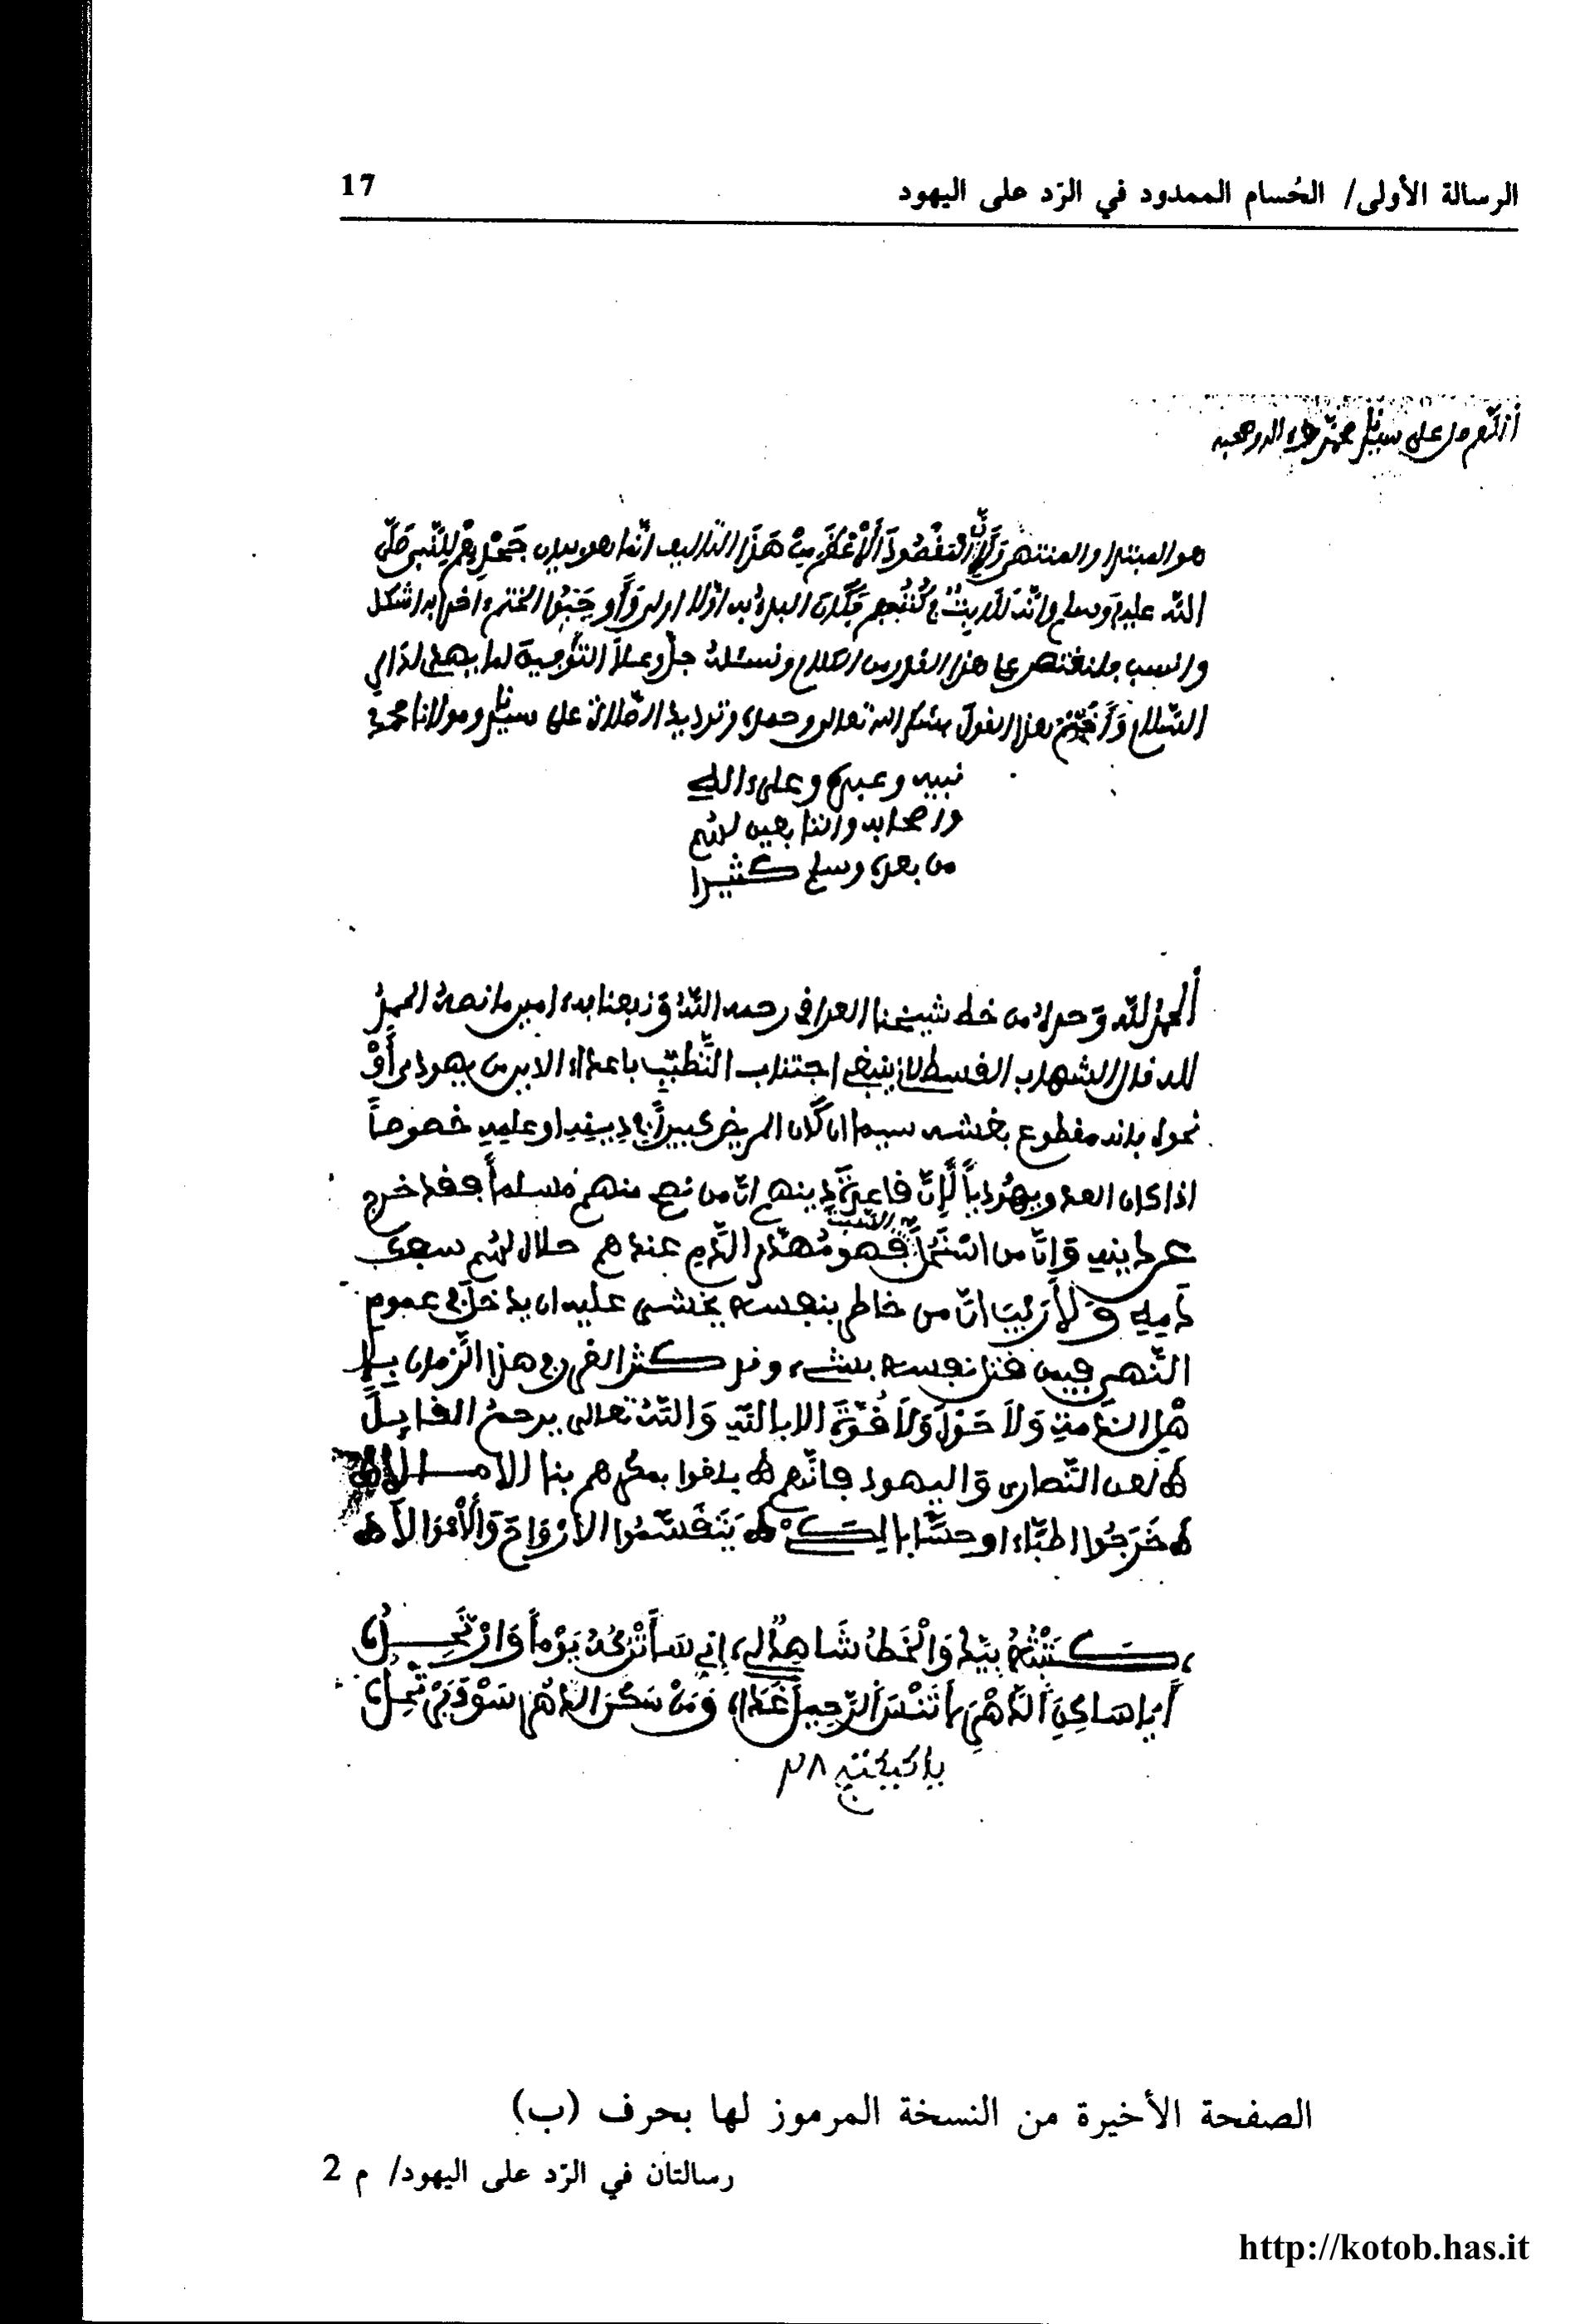 الرسالة الأولى/ الحُسام الممدود في الرّد على اليهود
17
اللهم صل على سيدنا محمد وءاله وصحبه
هو المبتدا والمنتهى ولأن المقصود الأعظم من هذا التاليف انما هو بيان جحدهم للنبي صلى
الله عليه وسلم وانه لم يثبت في كتبهم فكان البدء به أولا أولى وأوجب والختم ءاخرا به اشكل
وانسب فلنقتصر على هذا القدر من الكلام ونسئله جل وعلا التوفيق لما يهدي لدار
السلام ونختم هذا القول بشكر الله تعالى وحمده وترديد الصلاة على سيدنا ومولانا محمد
نبيه وعبده وعلى ءاله
وأصحابه والتابعين لهم
من بعده وسلم كثيرا
الحمد لله وحده من خط شيخنا العراقي رحمه الله ونفعنا به ءامين ما نصه الحمد
لله قال الشهاب القسطلاني ينبغي اجتناب التطبب باعداء الدين من يهودي أو
نحوه فانه مقطوع بغشه سيما ان كان المريض كبيرا في دينه او علمه خصوصاً
اذا كان العدو يهودياً لأن قاعدة دينهم ان من نصح منهم مسلماً فقد خرج
عن دينه وان من استحل السبت فهو مهدر الدم عندهم حلال لهم سفك
دمه ولا ريب ان من خاطر بنفسه يخشى عليه ان يدخل في عموم
النهي فيمن قتل نفسه بشيء وقد كثر الضرر في هذا الزمان
ولا حول ولا قوة الا بالله والله تعالى يرحم القايل
لعن النصارى واليهود فانهم بلغوا بمكرهم بنا الامال
خرجوا اطباء وحسابا لكي يتقسموا الارواح والأموال
كتبته بيدي والخط شاهد لي اني سأتركه يوماً وارتحل
أيا ساكن الدهر لا تنس الرحيل غدا ومن سكن الدهر سوف يرتحل
الصفحة الأخيرة من النسخة المرموز لها بحرف (ب)
رسالتان في الرّد على اليهود/ م 2
http://kotob.has.it